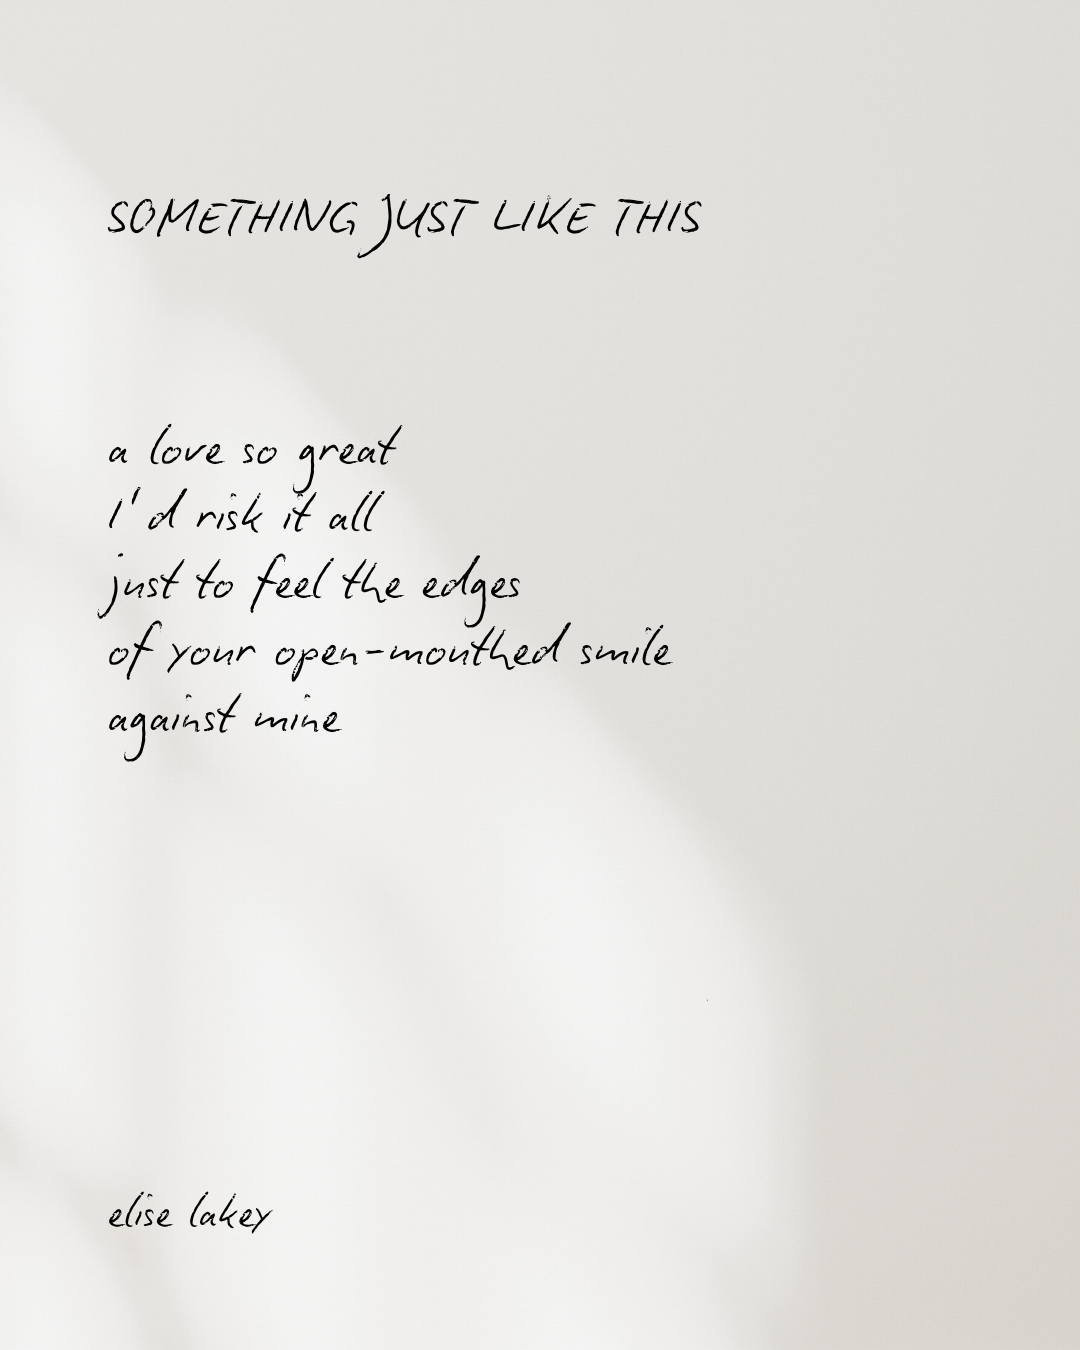 SOMETHING JUST LIKE THIS
a love so great
I'd risk it all
just to feel the edges
of your open-mouthed smile
against mine
elise lakey